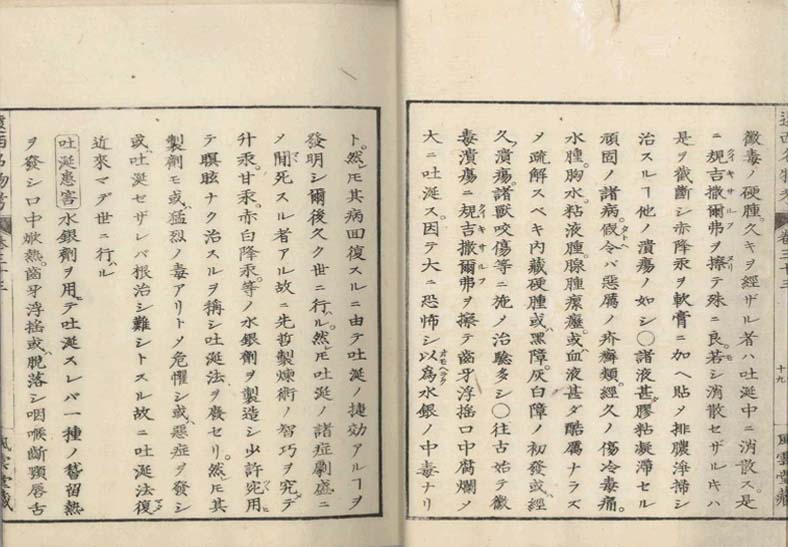 黴毒ノ硬腫。久キヲ經ザル者ハ吐涎中ニ消散ス。是
ニ䂓吉撒爾弗ヲ擦テ殊ニ良。若シ消散セザルキハ
クイキサルフ ヌリ モ
是ヲ截斷シ赤降汞ヲ軟膏ニ加ヘ貼メ排膿淨掃シ
治スルヿ他ノ潰瘍ノ如シ〇諸液甚ダ膠粘凝滯セル
頑固ノ諸病。假令バ惡厲ノ疥癬類。經久ノ傷冷毒痛。
タトヘ
水腫。胸水。粘液腫。腺腫瘰癧。或血液甚ダ酷厲ナラズ
メ疏解スベキ內藏硬腫或黑障。灰白障ノ初發或經
久ノ潰瘍。諸獸咬傷等ニ施メ治驗多シ〇往古始テ黴
毒潰瘍ニ䂓吉撒爾弗ヲ擦テ齒牙浮搖口中腐爛メ
クイキサルフ
大ニ吐涎ス。因テ大ニ恐怖シ以爲水銀ノ中毒ナリ
オモヘラク
十九
風雲堂藏
ト。然𪜈其病回復スルニ由テ吐涎ノ捷効アルヿヲ
發明シ爾後久ク世ニ行ハル。然𪜈吐涎ノ諸症劇盛ニ
メ間死スル者アル故ニ先哲製煉術ノ智巧ヲ究テ
升汞。甘汞。赤白降汞。等ノ水銀劑ヲ製造シ少許宛用
テ瞑眩ナク治スルヲ稱シ吐涎法ヲ廢セリ。然𪜈其
製劑モ或猛烈ノ毒アリトメ危懼シ或惡症ヲ發シ
或吐涎セザレバ根治シ難シトスル故ニ吐涎法復
近來マデ世ニ行ハル
吐涎患害 水銀劑ヲ用テ吐涎スレバ一種ノ稽留熱
ヲ發シ口中焮熱。齒牙浮搖或脫落シ咽喉斷頸唇舌
遠西名物考 卷三十三
風雲堂藏